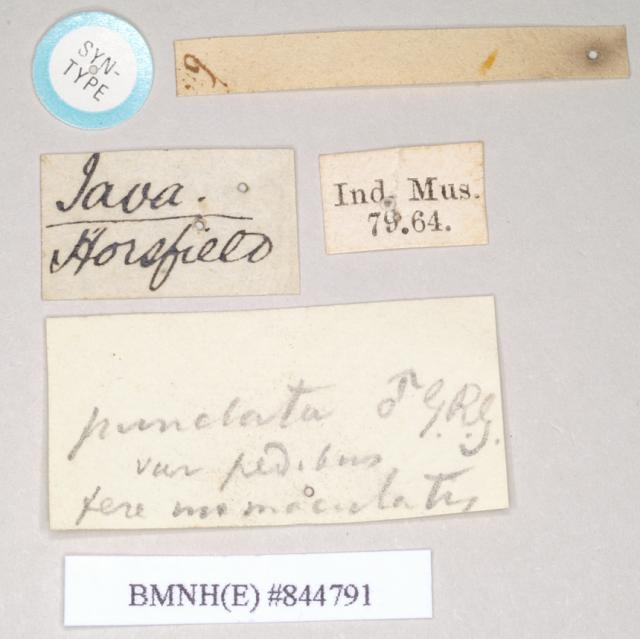 SYN-
TYPE
Java.
Horsfield
Ind. Mus.
79.64.
punctata ♂ G.R.G.
var pedibus
fere immaculatis
BMNH(E) #844791